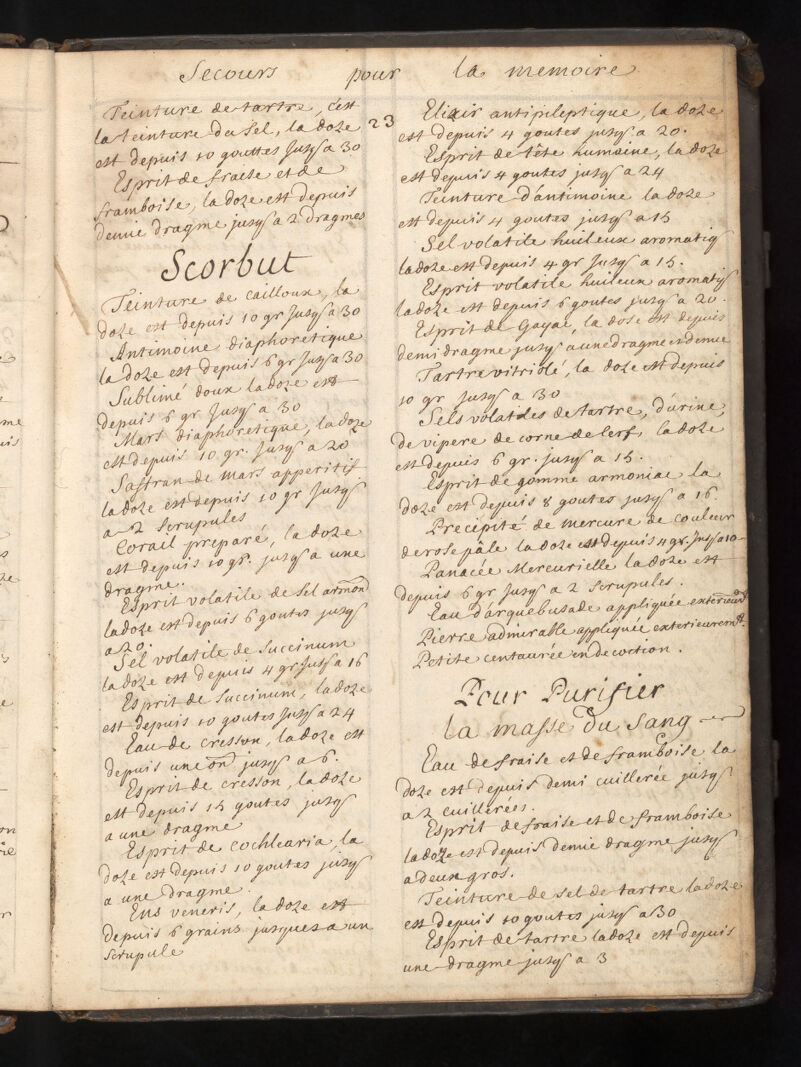 Secours pour la memoire
23
Teinture de tartre, c'est
la teinture du sel, la doze
est depuis 10 gouttes jusq a 30
Esprit de fraise et de
framboise, la doze est depuis
demie dragme jusq a 2 dragmes
Scorbut
Teinture de cailloux, la
doze est depuis 10 gr jusq a 30
Antimoine diaphoretique
la doze est depuis 6 gr jusq a 30
Sublimé doux la doze est
depuis 6 gr jusq a 30
Mars diaphoretique, la doze
est depuis 10 gr. jusq a 20
Saffran de mars apperitif
la doze est depuis 10 gr jusq
a 2 scrupules
Corail preparé, la doze
est depuis 10 gr. jusq a une
dragme.
Esprit volatile de sel armon
la doze est depuis 6 goutes jusq
a 20.
Sel volatile de Succinum
la doze est depuis 4 gr jusq a 16
Esprit de Succinum, la doze
est depuis 10 goutes jusq a 24
Eau de cresson, la doze est
depuis une on jusq a 6.
Esprit de cresson, la doze
est depuis 15 goutes jusq
a une dragme
Esprit de cochlearia, la
doze est depuis 10 goutes jusq
a une dragme.
Ens veneris, la doze est
depuis 6 grains jusques a un
scrupule
Elixir antipileptique, la doze
est depuis 4 goutes jusq a 20.
Esprit de tête humaine, la doze
est depuis 4 goutes jusq a 24
Teinture d'antimoine la doze
est depuis 4 goutes jusq a 15
Sel volatile huileux aromatiq
la doze est depuis 4 gr jusq a 15.
Esprit volatile huileux aromatiq
la doze est depuis 6 goutes jusq a 20.
Esprit de Gayac, la dose est depuis
demi dragme jusq a une dragme et demie
Tartre vitriolé, la doze est depuis
10 gr jusq a 30
Sels volatiles de tartre, d'urine,
de vipere de corne de Cerf, la doze
est depuis 6 gr. jusq a 15.
Esprit de gomme armoniac la
doze est depuis 8 goutes jusq a 16.
Precipité de mercure de couleur
de rose pâle la doze est depuis 4 gr. jusq a 10
Panacée Mercurielle la doze est
depuis 6 gr jusq a 2 scrupules.
Eau d'arquebusade appliquée
Pierre admirable appliquée exterieuremt.
Petite centaurée en decoction.
Pour Purifier
la masse du Sang
Eau de fraise et de framboise la
doze est depuis demi cuillerée jusq
a 2 cuillerées.
Esprit de fraise et de framboise
la doze est depuis demie dragme jusq
a deux gros.
Teinture de sel de tartre la doze
est depuis 10 goutes jusq a 30
Esprit de tartre la doze est depuis
une dragme jusq a 3